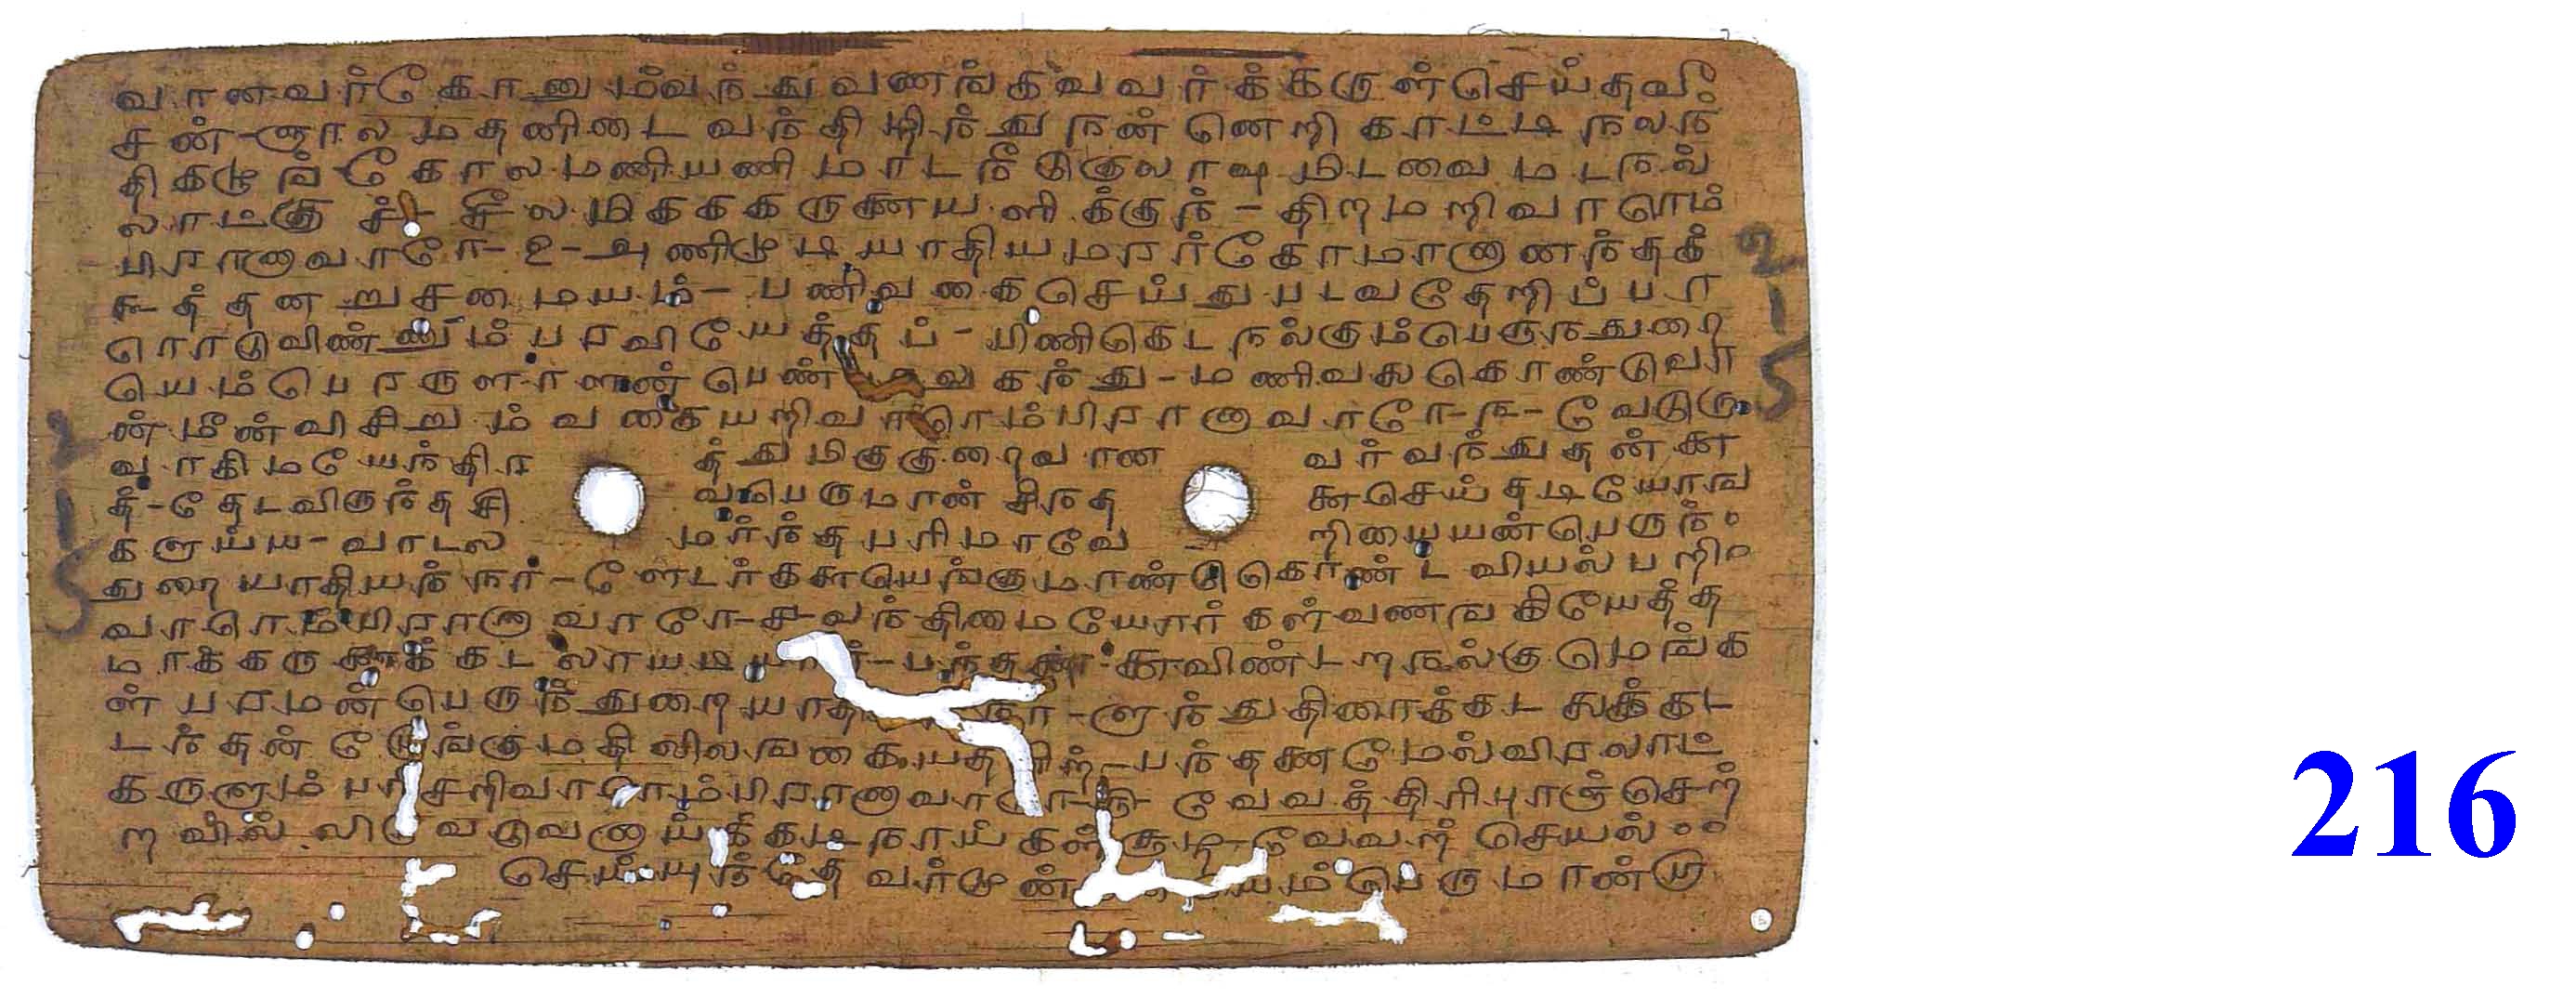 வானவர்கோனும்வந்துவணங்கவவர்க்கருள்செய்தவீ
சன்-ஞாலமதனிடைவந்திழிந்துநன்னெறிகாட்டிநலந்
திகழுங்கோலமணியணிமாடநீடுகுலாவுமிடவைமடநல்
லாட்குச்-சீலமிகககருணையளிக்குந்-திறமறிவாரெம்
பிரானாவாரே-௨-அணிமுடியாதியமரர்கோமானானந்தக்
கூத்தனறுசமையம்-பணிவகைசெய்துபடவதேறிப்பா
ரொடுவிண்ணும்பரவியேத்தப்-பிணிகெடநல்கும்பெருந்துறை
யெம்பெரருளாளன்பெண்பாலுகந்து-மணிவலைகொண்டுவா
ன்மீன்விசிறும்வகையறிவாரெம்பிரானாவாரே-௩-வேடுரு
வாகிமயேந்திர த்துமிகுகுறைவான வர்வந்துதன்னை
த்-தேடவிருந்தசி வபெருமான்சிந்த னைசெய்தடியோங்
களுய்ய-வாடல மர்ந்தபரிமாவே றியையன்பெருந்
துறையாதியந்நாள்-ளேடர்களையெங்குமாண்டுகொண்டவியல்பறி
வாரெம்பிரானாவாரே-௪-வந்திமையோர்கள்வணங்கியேத்த
மாக்கருணைக்கடலாயடியார்-பந்தனைவிண்டறநல்குமெங்க
ள்பரமன்பெருந்துறையாதி நாள்-ளுந்துதிரைக்கடலைக்கட
டந்தன்றோங்குமதிலிலங்கையதனிற்-பந்தணைமேல்விரலாட்
கருளும்பரிசறிவாரெம்பிரானாவாரே-௫-வேவத்திரிபுரஞ்செற்
றவில்லிவேடுவனாய்க்கடிநாய்கள்சூழ-வேவற்செயல்
செய்யுந்தேவர்முன் யெம்பெருமான்
216